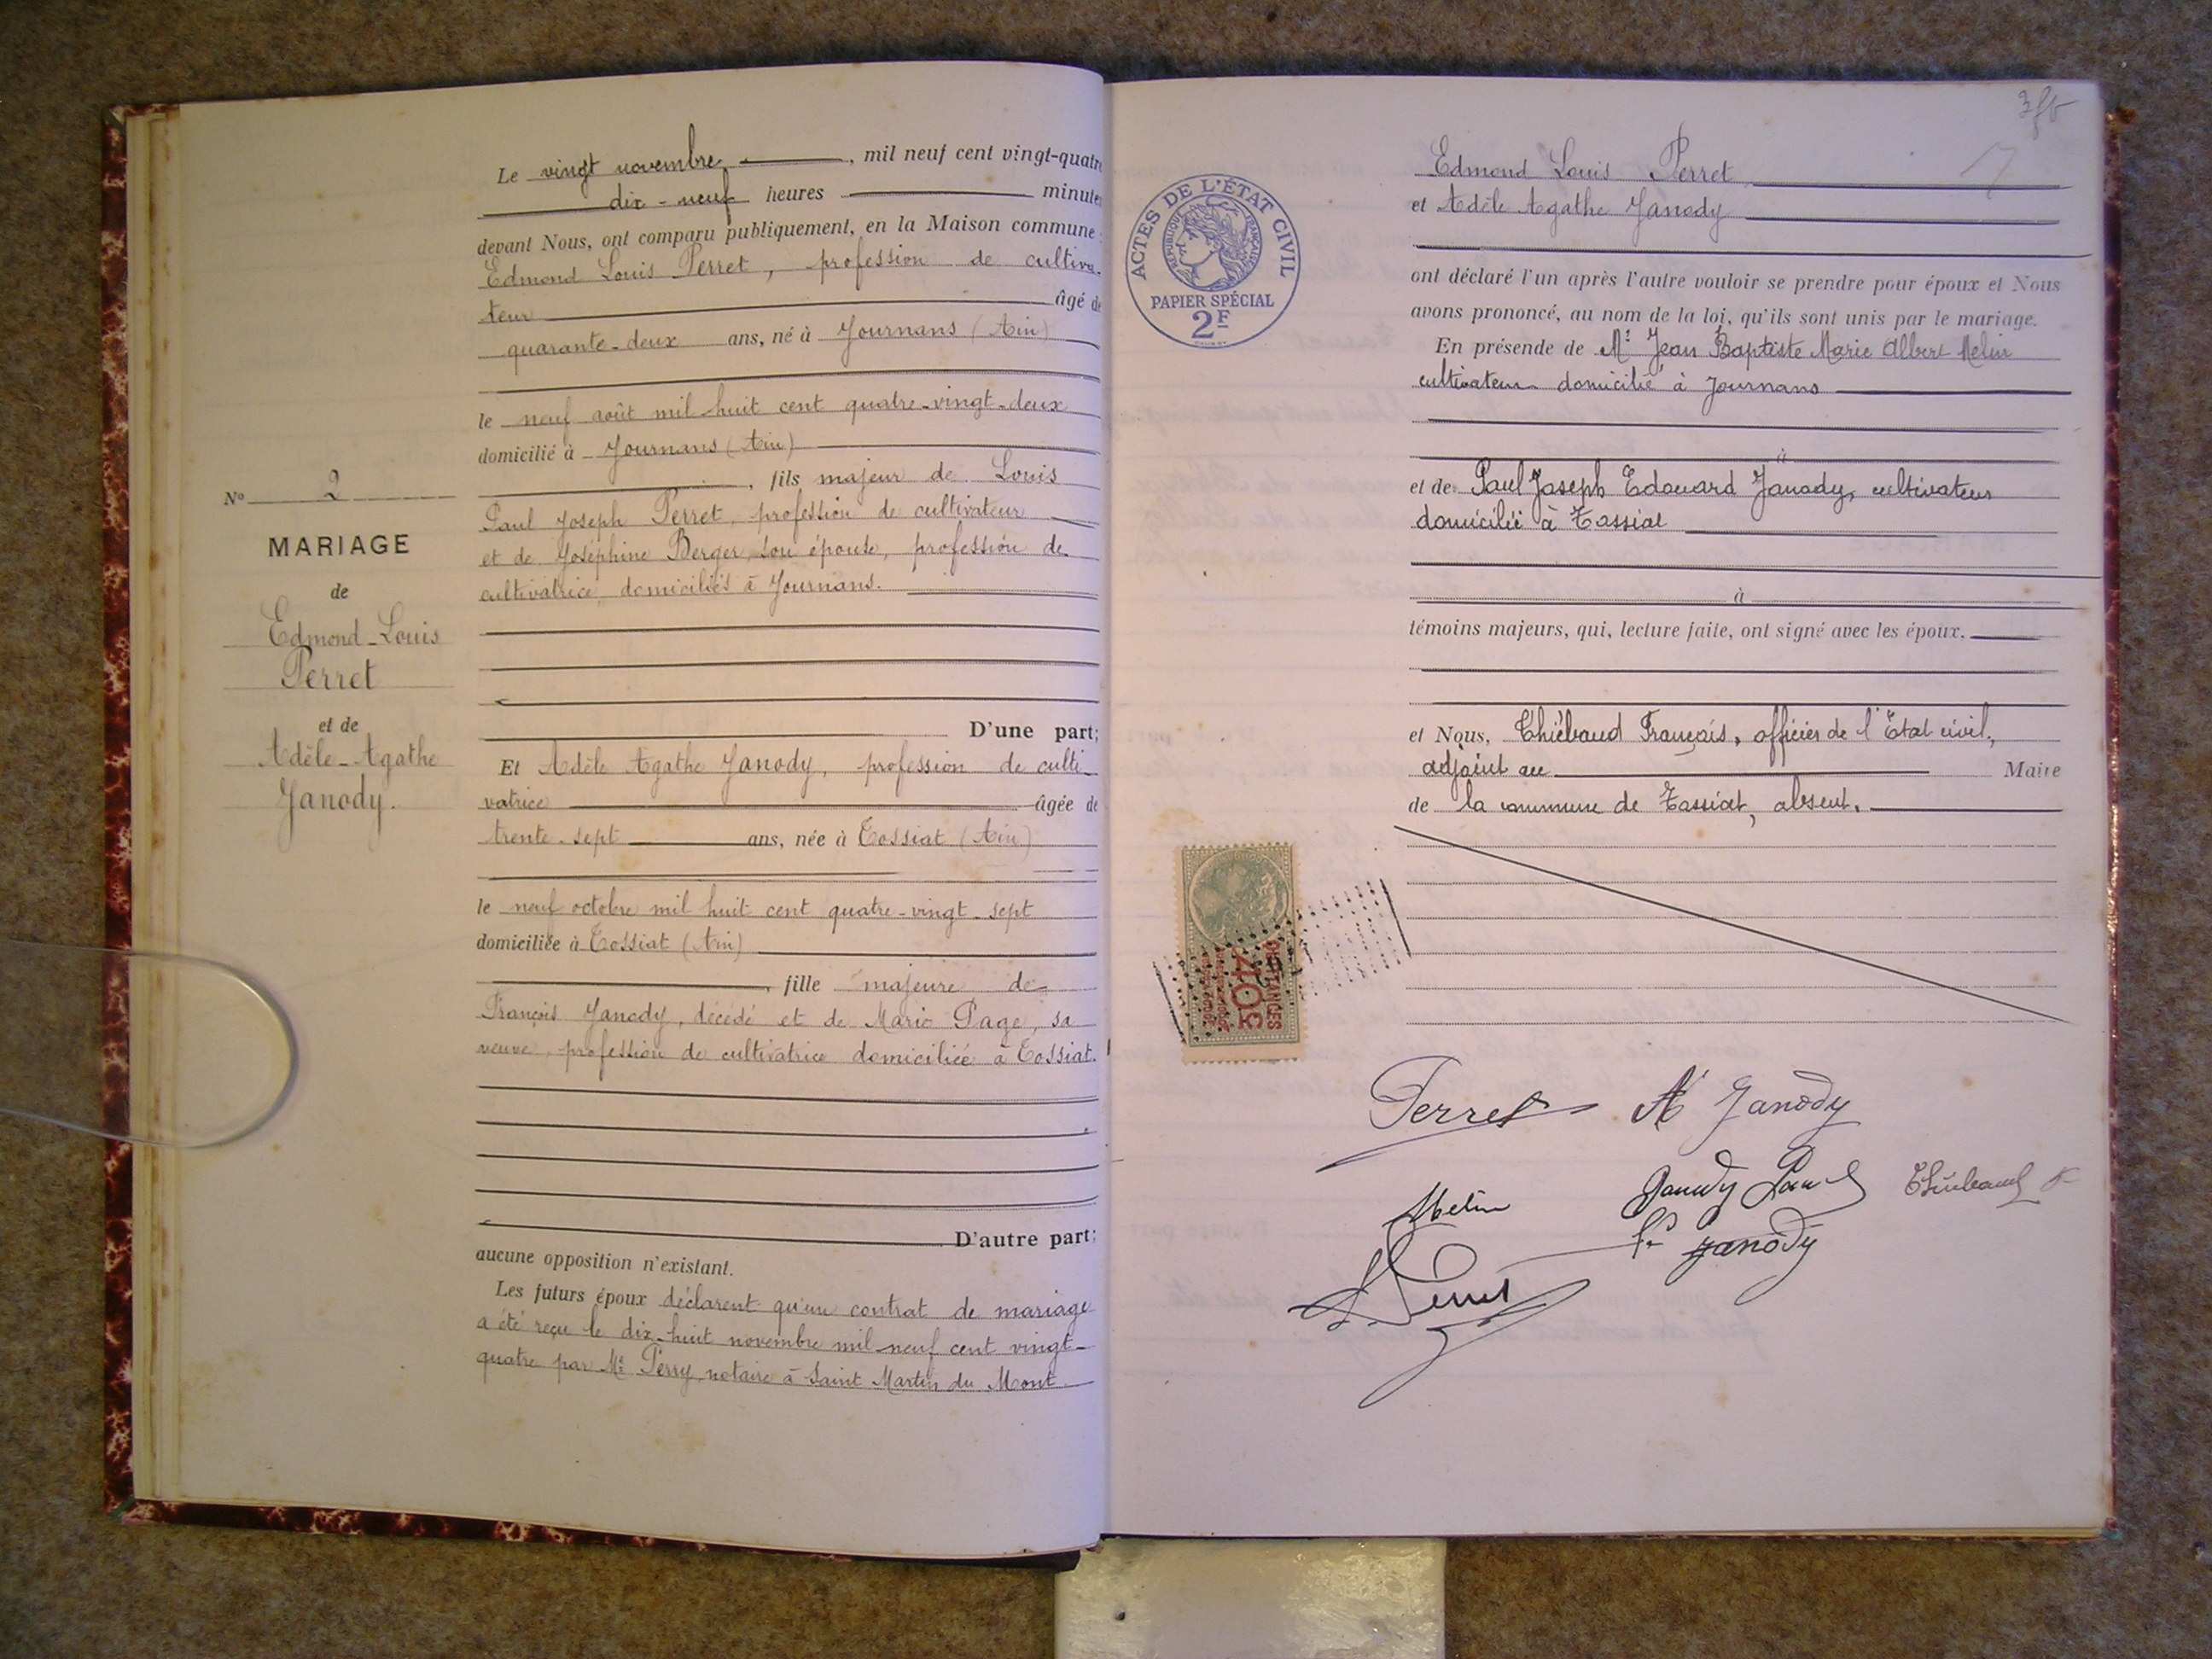 Le vingt novembre, mil neuf cent vingt-quatre
dix-neuf heures minutes
devant Nous, ont comparu publiquement, en la Maison commune :
Edmond Louis Perret, profession de cultiva-
teur âgé de
quarante-deux ans, né à Journans (Ain)
le neuf août mil huit cent quatre-vingt-deux
domicilié à Journans (Ain)
, fils majeur de Louis
Paul Joseph Perret, profession de cultivateur
et de Joséphine Berger, son épouse, profession de
cultivatrice domiciliés à Journans.
D'une part;
Nº 2
MARIAGE
de
Edmond-Louis
Perret
et de
Adèle-Agathe
Janody.
Et Adèle Agathe Janody, profession de culti-
vatrice âgée de
trente-sept ans, née à Tossiat (Ain)
le neuf octobre mil huit cent quatre-vingt-sept
domiciliée à Tossiat (Ain)
, fille majeure de
François Janody, décédé et de Marie Page, sa
veuve, profession de cultivatrice domiciliée à Tossiat.
D'autre part;
aucune opposition n'existant.
Les futurs époux déclarent qu'un contrat de mariage
a été reçu le dix-huit novembre mil neuf cent vingt-
quatre par Me Perry, notaire à Saint Martin du Mont
Edmond Louis Perret
et Adèle Agathe Janody
ont déclaré l'un après l'autre vouloir se prendre pour époux et Nous
avons prononcé, au nom de la loi, qu'ils sont unis par le mariage.
En présende de Mr Jean Baptiste Marie Albert Melin
cultivateur domicilié à Journans
à
et de Paul Joseph Edouard Janody, cultivateur
domicilié à Tossiat
à
témoins majeurs, qui, lecture faite, ont signé avec les époux.
et Nous, Thiébaud François, officier de l'Etat civil,
adjoint au Maire
de la commune de Tossiat, absent.
ACTES DE L'ÉTAT CIVIL
RÉPUBLIQUE FRANÇAISE
PAPIER SPÉCIAL
2F
QUITTANCES
40c
Perret A Janody
Melin Janody Paul Thiébaud F
Fs Janody
L Perret